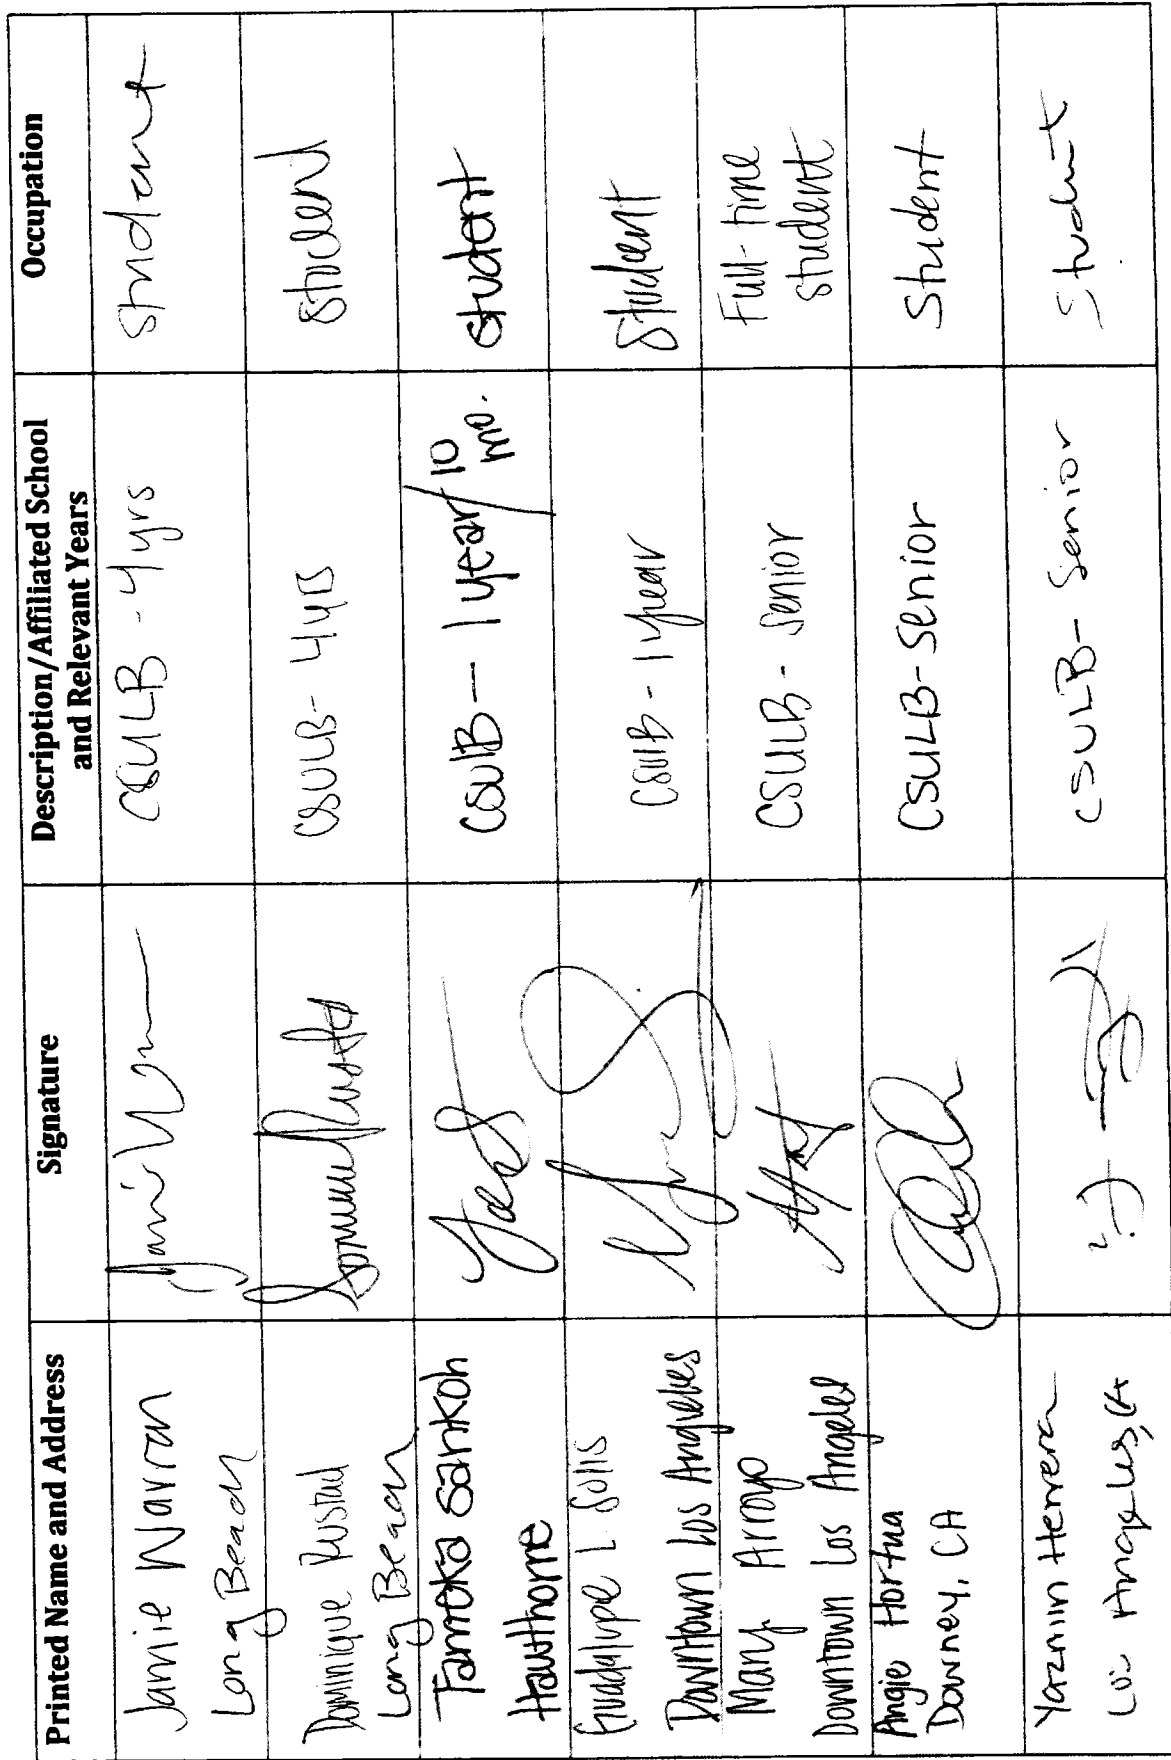 Printed Name and Address
Signature
Description/Affiliated School
and Relevant Years
Occupation
Jamie Narron
Long Beach
CSULB - 4yrs
Student
Dominique Rustad
Long Beach
CSULB - 4yrs
Student
Tameka Sankoh
Hawthorne
CSULB - 1 year/10
mo.
Student
Guadalupe L Solis
Downtown Los Angeles
CSULB - 1 year
Student
Mary Arroyo
Downtown Los Angeles
CSULB - Senior
Full-time
student
Angie Hortua
Downey, CA
CSULB-Senior
Student
Yazmin Herrera
Los Angeles, CA
CSULB - Senior
Student